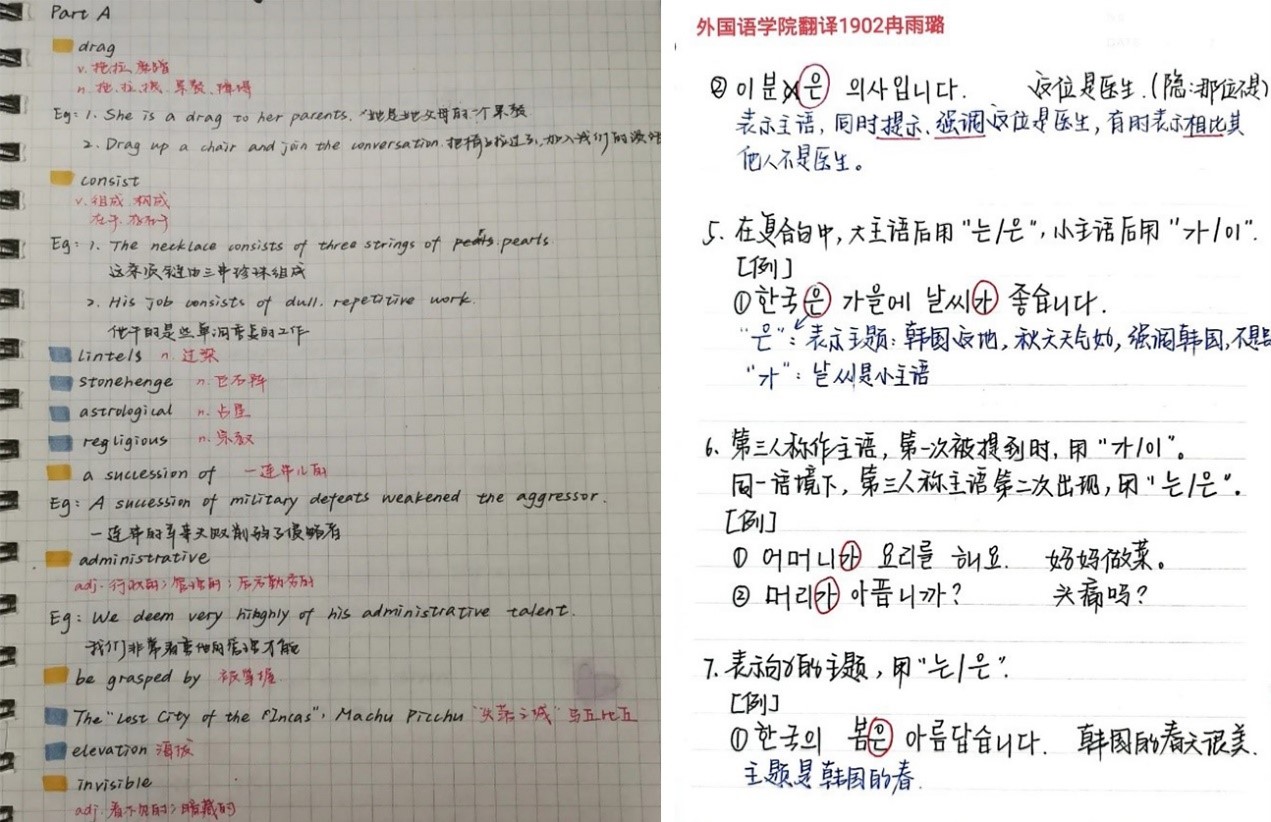 Part A
drag
v. 拖拉,磨蹭
n. 拖、拉、拽、累赘、障碍
Eg: 1. She is a drag to her parents. 她是她父母的一个累赘
2. Drag up a chair and join the conversation. 把椅子拉过来,加入我们的谈话
consist
v. 组成 构成
在于、存在于
Eg: 1. The necklace consists of three strings of pearls.
这条项链由三串珍珠组成
2. His job consists of dull. repetitive work.
他干的是些单调重复的工作
lintels n 过梁
stonehenge n. 巨石阵
astrological n. 占星
regligious n. 宗教
a succession of 一连串儿的
Eg: A succession of military defeats weakened the aggressor.
一连串的军事失败削弱了侵略者
administrative
adj. 行政的;管理的;后方勤务的
Eg: We deem very highly of his administrative talent.
我们非常看重他的管理才能
be grasped by 被掌握
The "Lost City of the Incas", Machu Picchu "失落之城" 马丘比丘
elevation 海拔
invisible
adj. 看不见的;暗藏的
外国语学院翻译1902冉雨璐
② 이분은 의사입니다. 这位是医生.(隐:那位不是)
表示主语,同时提示、强调这位是医生,有时表示相比其
他人不是医生。
5. 在复合句中,大主语后用"는/은",小主语后用"가/이".
[例]
①한국은 가을에 날씨가 좋습니다.
"은":表示主题:韩国这地,秋天天气好,强调韩国,不是
"가":날씨是小主语
6. 第三人称作主语,第一次被提到时,用"가/이"。
同一语境下,第三人称主语第二次出现,用"는/은"。
[例]
① 어머니가 요리를 해요. 妈妈做菜。
② 머리가 아픕니까? 头痛吗?
7. 表示句子的主题,用"는/은".
[例]
①한국의 봄은 아름답습니다. 韩国的春天很美.
主题是韩国的春.